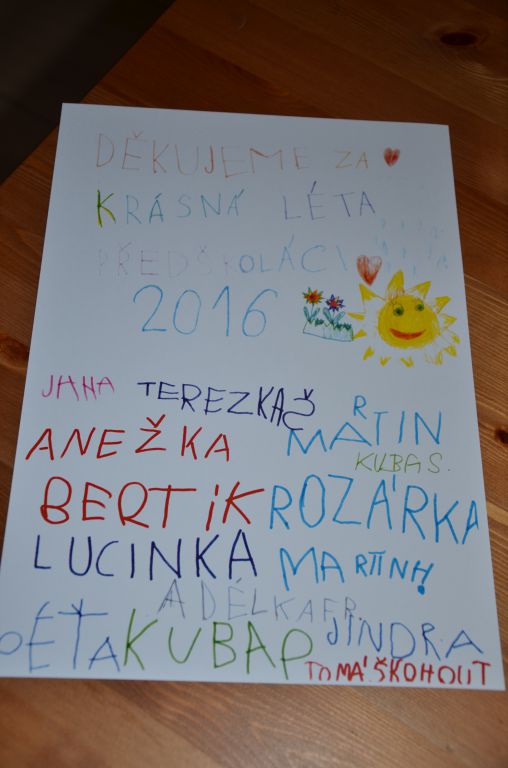 DĚKUJEME ZA
KRÁSNÁ LÉTA
PŘEDŠKOLÁCI
2016
JANA TEREZKAČ
ANEŽKA MARTIN
KUBA S.
BERTIK ROZÁRKA
LUCINKA MARTINH
ADÉLKA FR.
PÉŤA KUBAP JINDRA
TOMÁŠ KOHOUT